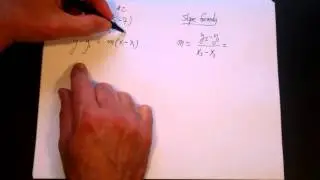 AC
-2)
y - y₁ = m(x - x₁)
Slope formula
m = y₂ - y₁ / x₂ - x₁ =